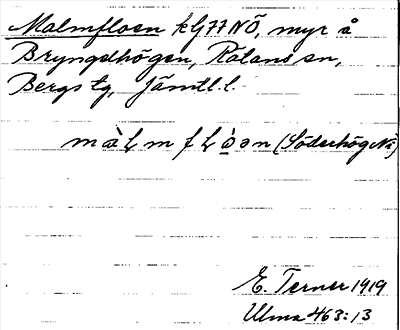 Malmfloen kg77NÖ, myr å
Bryngelhögen, Rätans sn,
Bergs tg, Jämtl. l.
(Söderhög Nä)
E. Terner 1919
Ulma 463:13